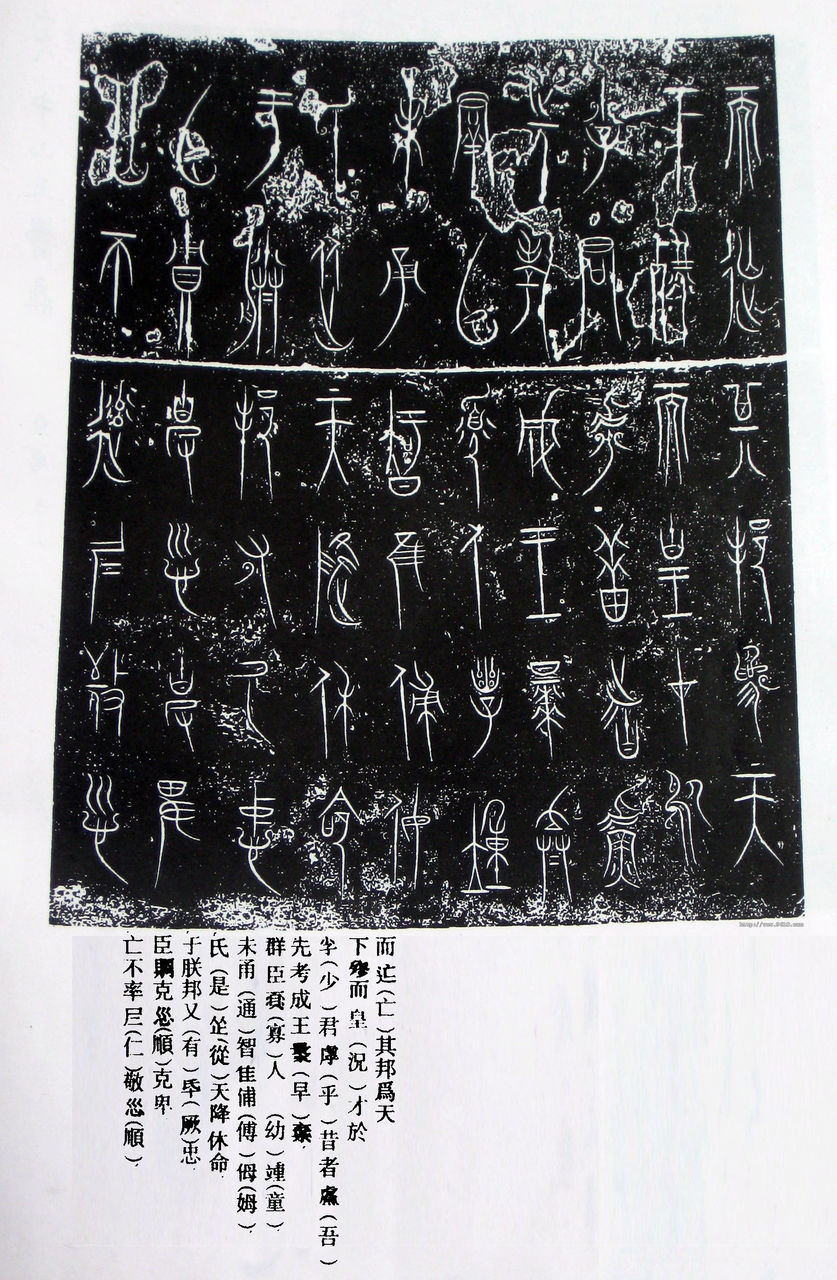 而𨒌(亡)其邦爲天
下而皇(況)才於
(少)君虖(乎)昔者(吾)
先考成王(早)棄
群臣(寡)人(幼)(童)
未甬(通)智隹俌(傅)㑄(姆)
氏(是)(從)天降休命
于朕邦又(有)氒(厥)忠
臣賙克(順)克卑
亡不率𡰥(仁)敬(順)